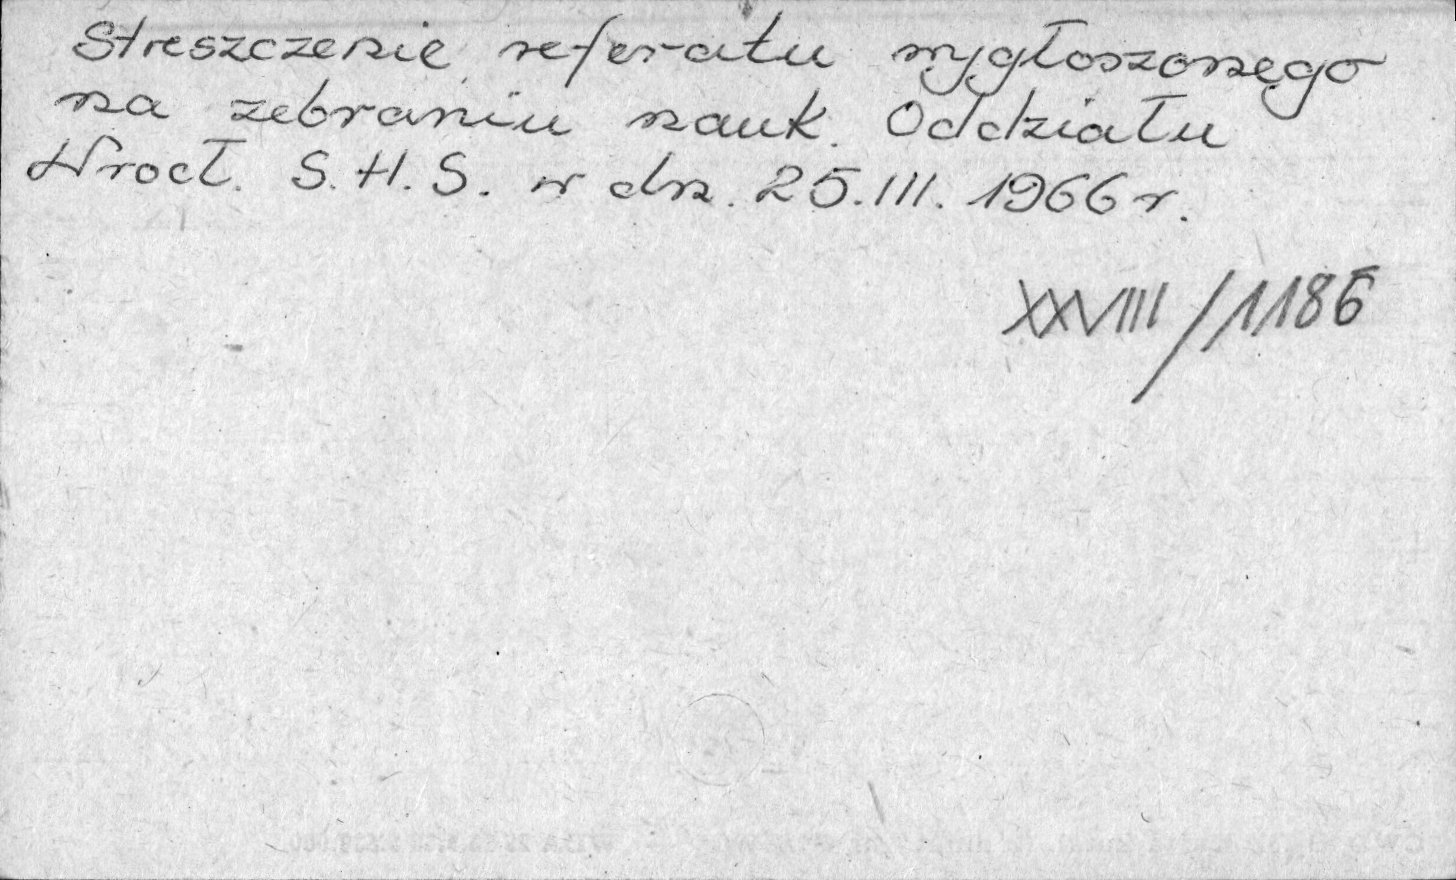 Streszczenie referatu wygłoszonego
na zebraniu nauk. Oddziału
Wrocł. S.H.S. w dn. 25.III. 1966 r.
XXVIII/1186